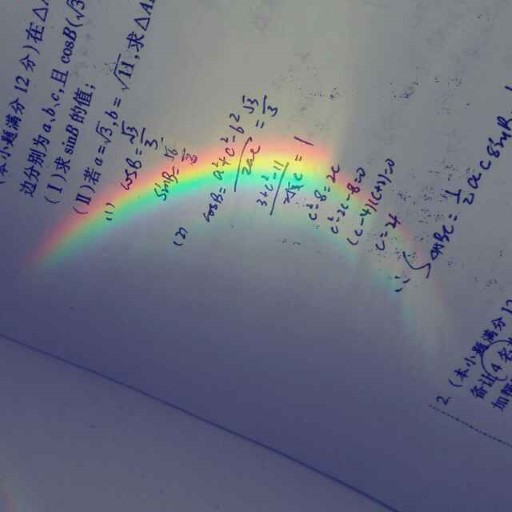 本小题满分12分)在△A
边分别为a,b,c,且cosB(√3
(Ⅰ)求sinB的值;
(Ⅱ)若a=√3,b=√11,求△A
(1) cosB=√3/3
sinB=√6/3
(2) cosB=a²+c²-b²/2ac=√3/3
3+c²-11/2√3c=1
c²-8=2c
c²-2c-8=0
(c-4)(c+2)=0
c=4
∴S△ABC=1/2acsinB
2.(本小题满分12
备注(4名